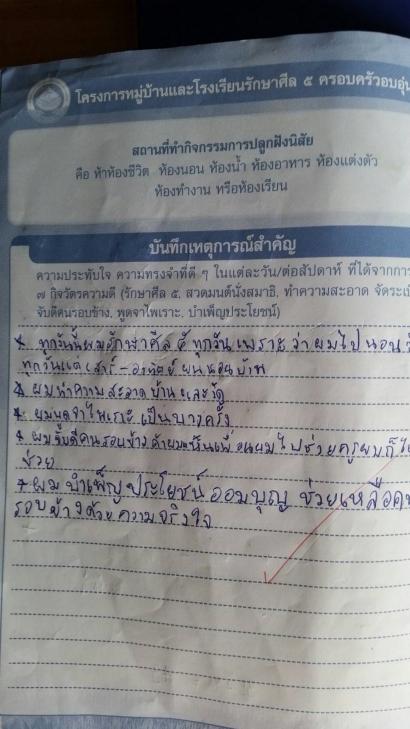 โครงการหมู่บ้านและโรงเรียนรักษาศีล ๕ ครอบครัวอบอุ่น
สถานที่ทำกิจกรรมการปลูกฝังนิสัย
คือ ห้าห้องชีวิต ห้องนอน ห้องน้ำ ห้องอาหาร ห้องแต่งตัว
ห้องทำงาน หรือห้องเรียน
บันทึกเหตุการณ์สำคัญ
ความประทับใจ ความทรงจำที่ดี ๆ ในแต่ละวัน/ต่อสัปดาห์ ที่ได้จากการ
๗ กิจวัตรความดี (รักษาศีล ๕, สวดมนต์นั่งสมาธิ, ทำความสะอาด จัดระเบ
จับดีคนรอบข้าง, พูดจาไพเราะ, บำเพ็ญประโยชน์)
ทุกวันนี้ผมรักษาศีล ๕ ทุกวันเพราะว่าผมไปนอนวั
ทุกวันแต่ เสาร์ - อาทิตย์ ผมนอนบ้าน
ผมทำความสะอาดบ้านและวัด
ผมพูดจาไพเราะเป็นบางครั้ง
ผมจับดีคนรอบข้างถ้าผมเห็นเพื่อนผมไปช่วยครูผมก็ไ
ช่วย
ผมบำเพ็ญประโยชน์ออมบุญ ช่วยเหลือค
รอบข้างด้วยความจริงใจ